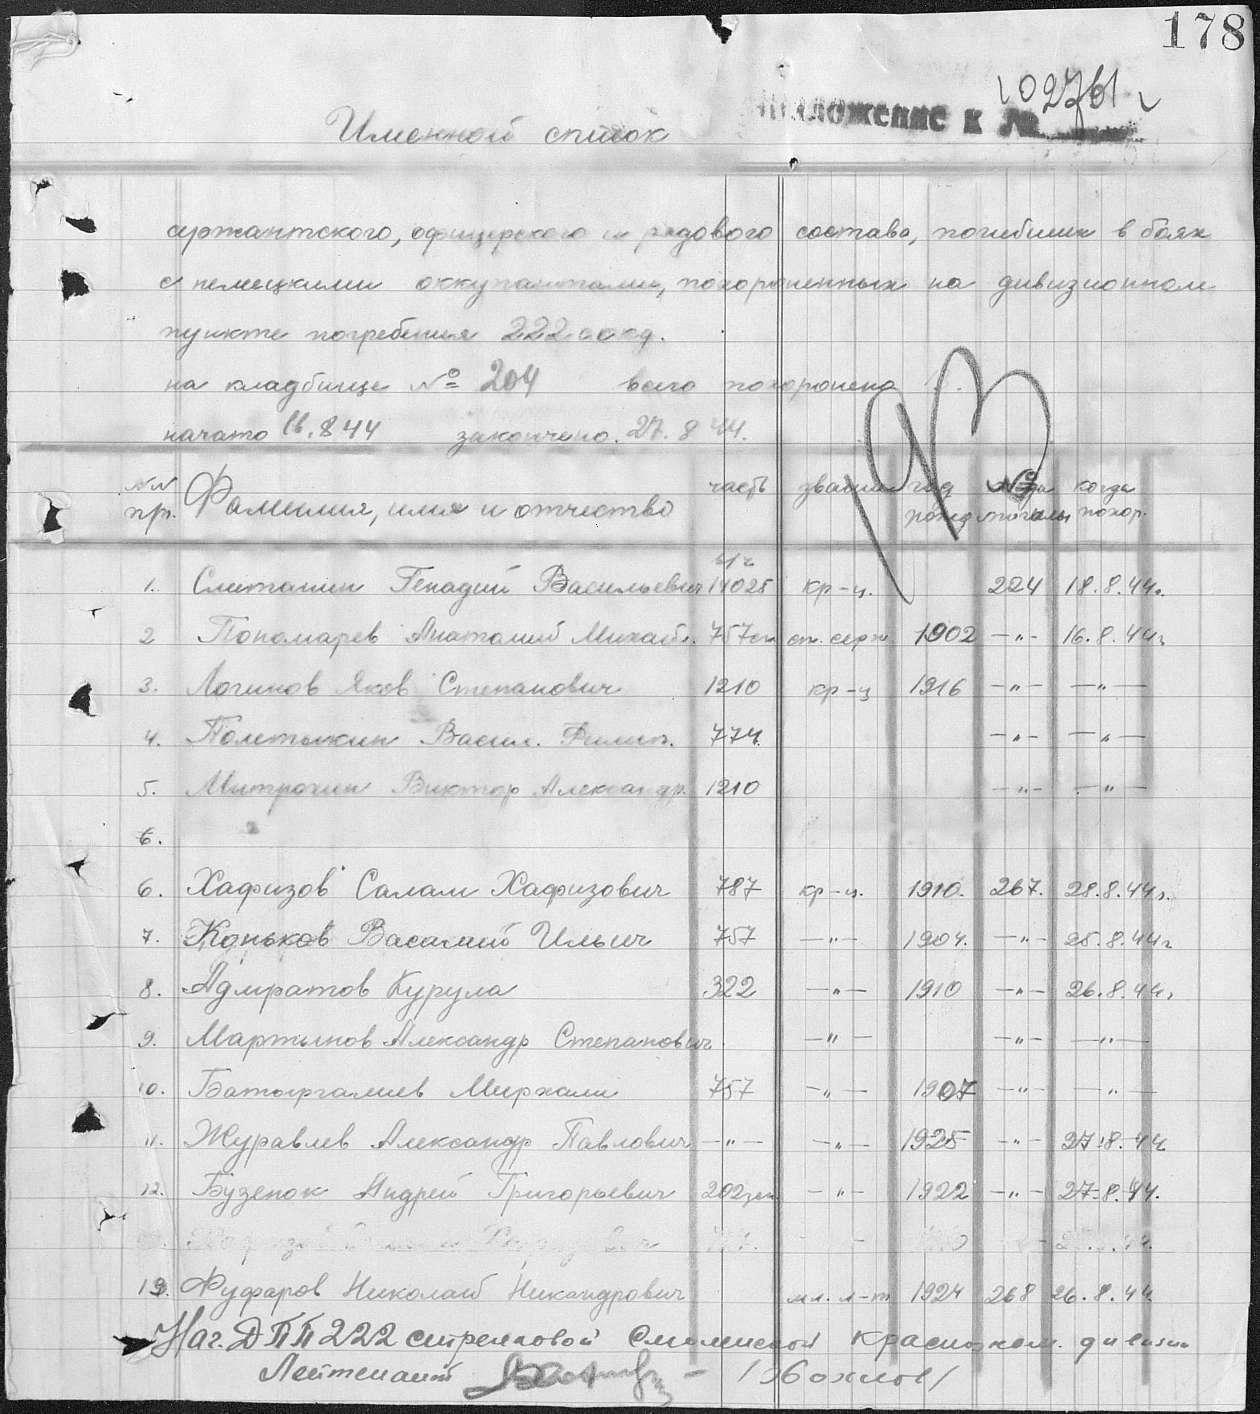 178
02761
Приложение к №
Именной список
сержантского, офицерского и рядового состава, погибших в боях
с немецкими оккупантами, похороненных на дивизионном
пункте погребения 222
на кладбище № 204 всего похоронено 13.
начато 16.8 44 закончено. 27. 8 44.
№№ пр. Фамилия, имя и отчество часть звание год рожд № могилы когда похор.
1. Сметанин Генадий Васильевич 14025 кр-ц. 224 18.8.44г.
2 Пономарев Анатолий Михайл. 757сп ст. серж 1902 —"— 16.8.44г
3. Логинов Яков Степанович 1210 кр-ц 1916 —"— —"—
4. Полетыкин Васил. Филип. 774 —"— —"—
5. Митрохин Виктор Александр. 1210 —"— —"—
6.
6. Хафизов Салам Хафизович 787 кр-ц. 1910. 267. 28.8.44г.
7. Коньков Василий Ильич 757 —"— 1904. —"— 25.8.44г
8. Адмратов Курула 322 —"— 1910 —"— 26.8.44г
9. Мартынов Александр Степанович —"— —"— —"—
10. Батыргалиев Мирхали 757 —"— 1907 —"— —"—
11. Журавлев Александр Павлович —"— —"— 1925 —"— 27.8.44
12. Бузенок Андрей Григорьевич 202 —"— 1922 —"— 27.8.44.
13. Фуфаров Николай Никандрович мл. л-т 1924 268 26.8.44
Нач. ДПП 222 стрелковой Смоленской краснознам. дивизии
Лейтенант